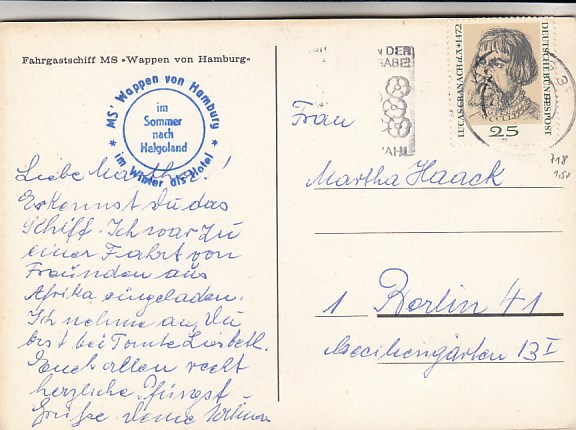 Fahrgastschiff MS »Wappen von Hamburg«
MS' Wappen von Hamburg
im
Sommer
nach
Helgoland
im Winter als Hotel
Liebe Martha!
Erkennst Du das
Schiff. Ich war zu
einer Fahrt von
Freunden aus
Afrika eingeladen.
Ich nehme an, Du
bist bei Tante Lisbeth.
Euch allen recht
herzliche Pfingst
Grüße Deine
N DER
GABE
AHL
LUCAS CRANACH d.Ä. • 1472
DEUTSCHE BUNDESPOST
25
718
1,50
Frau
Martha Haack
1 Berlin 41
13 I